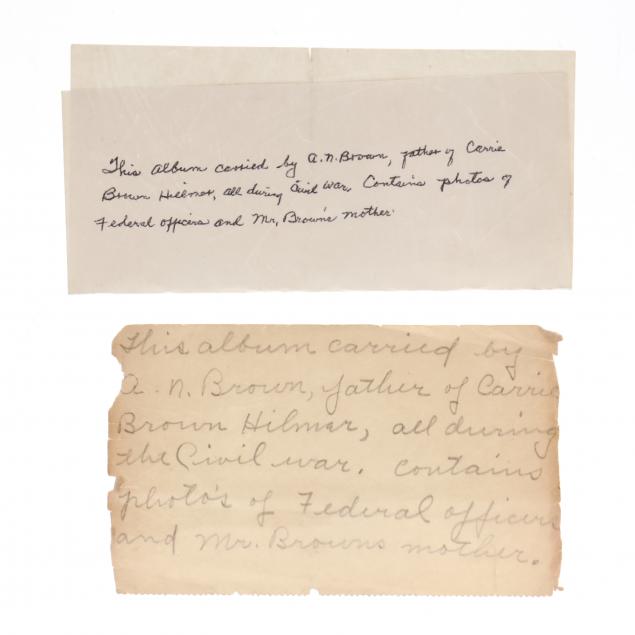 This album carried by A.N. Brown, father of Carrie
Brown Hilmer, all during Civil War. Contains photos of
Federal officers and Mr. Brown's mother.
This album carried by
A. N. Brown, father of Carrie
Brown Hilmer, all during
the Civil war. contains
photo's of Federal officers
and Mr. Browns mother.